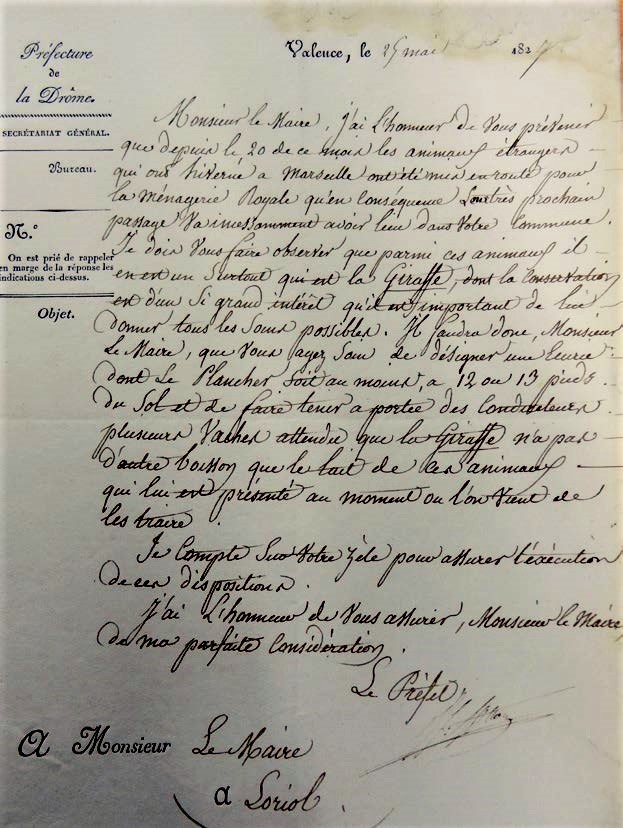 Préfecture
de
la Drôme.
SECRÉTARIAT GÉNÉRAL.
Bureau.
N.º
On est prié de rappeler
en marge de la réponse les
indications ci-dessus.
Objet.
Valence, le 25 mai 1827
Monsieur le Maire, j'ai l'honneur de vous prévenir
que depuis le 20 de ce mois les animaux étrangers
qui ont hiverné à Marseille ont été mis en route pour
la Ménagerie Royale qu'en conséquence leur très prochain
passage va incessamment avoir lieu dans votre Commune.
Je dois vous faire observer que parmi ces animaux il
en est un surtout qui est la Giraffe, dont la Conservation
est d'un si grand intérêt qu'il est important de lui
donner tous les soins possibles. Il faudra donc, Monsieur
Le Maire, que vous ayez soin de désigner une Ecurie
dont Le Plancher soit au moins, a 12 ou 13 pieds
du Sol et de faire tenir a portée des Conducteurs
plusieurs Vaches attendu que la Giraffe n'a pas
d'autre boisson que le lait de ces animaux
qui lui est présenté au moment ou l'on Vient de
les traire.
Je Compte Sur Votre zèle pour assurer l'exécution
de ces dispositions.
J'ai L'honneur de Vous assurer, Monsieur le Maire,
de ma parfaite Considération.
Le Préfet
A Monsieur Le Maire
a Loriol.